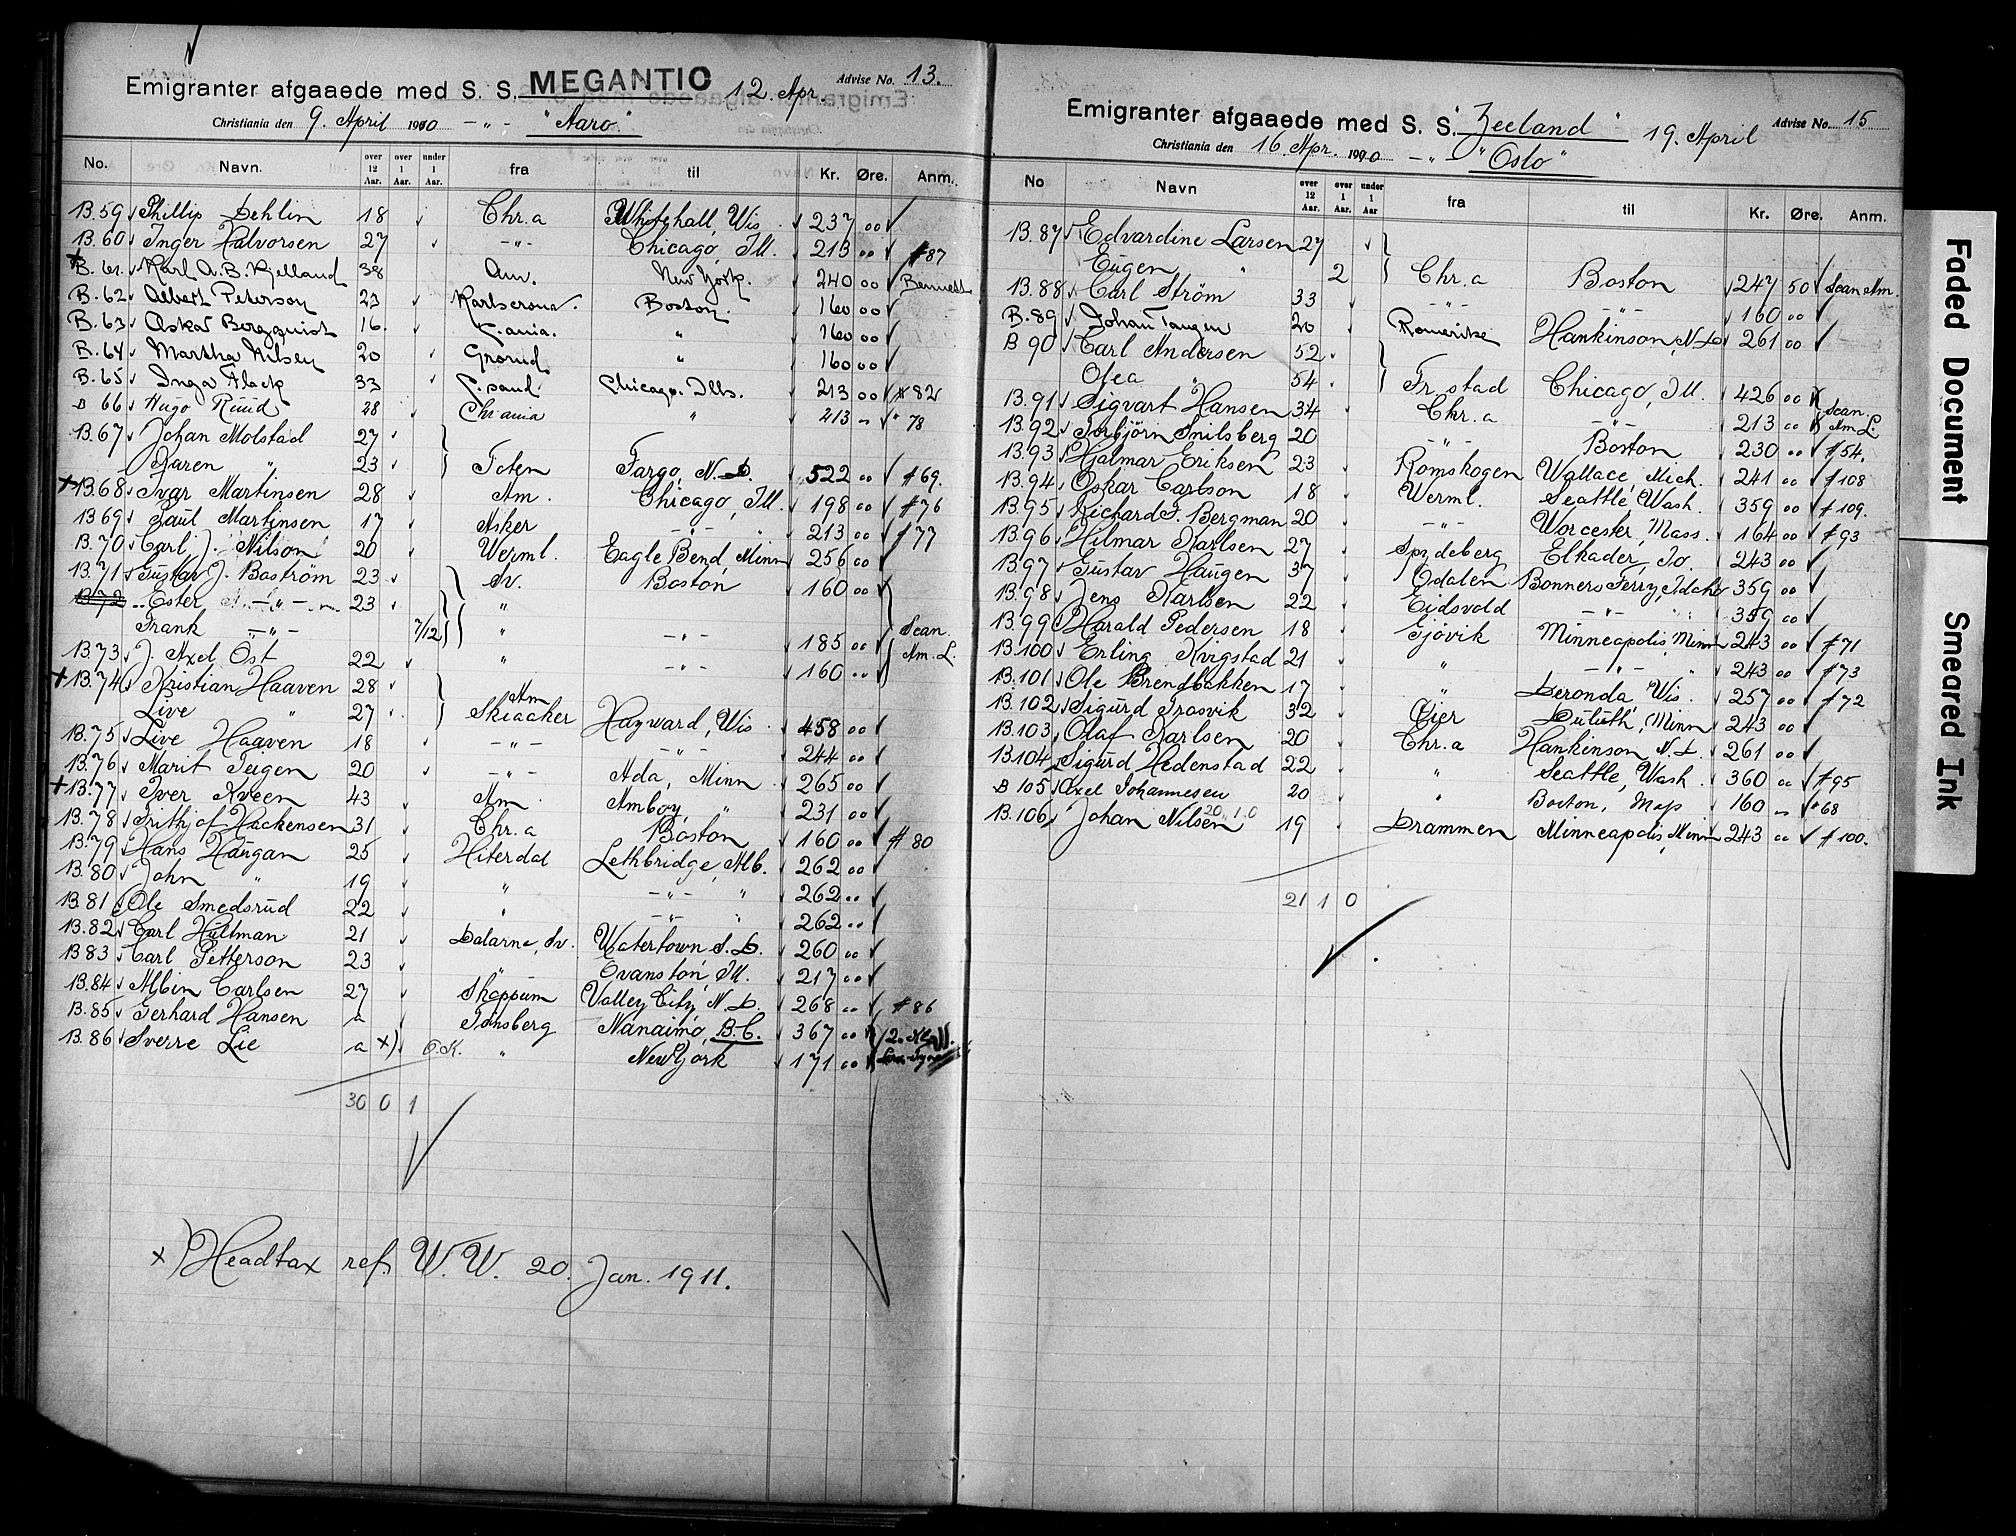 Emigranter afgaaede med S. S. MEGANTIC 12. Apr. Advise No. 13.
Christiania den 9. April 1910 — „ — "Aaro"
No. Navn. over 12 Aar. over 1 Aar. under 1 Aar. fra til Kr. Øre. Anm.
B.59 Phillip Dehlin 18 Chr.a Whitehall, Wis. 237 00
B.60 Inger Halvorsen 27 — „ — Chicago, Ill. 213 00 #87
B.61. Karl A.B. Kjelland 38 Am. New York. 240 00 Bennett
B.62 Albert Peterson 23 Karlscrona. Boston. 160 00
B.63 Oskar Bergquist 16. K.ania. „ 160 00
B.64 Martha Nilsen 20 Grorud „ 160 00
B.65 Inga Flack 33 K.sand Chicago. Ills. 213 00 #82
B 66 Hugo Ruud 28 Chr.ania „ 213 - " 78
B.67 Johan Molstad 27
Karen „ 23 Toten Fargo, N.D. 522 00 #69.
B.68 Ivar Martinsen 28 Am. Chicago, Ill. 198 00 #76
B.69 Paul Martinsen 17 Asker — „ — 213 00 #77
B.70 Carl J. Nilson 20 Werml. Eagle Bend, Minn 256 00
B.71 Gustav J. Boström 23 Sv. Boston 160 00
B.72 „ Ester — „ — 23 „
Frank — „ — 7/12 „ — „ — 185 00 Scan. Am. L.
B.73 J. Axel Öst 22 „ — „ — 160 00
B.74 Kristian Haaven 28 Am
Live „ 27 Skiaaker Hayward, Wis. 458 00
B.75 Live Haaven 18 — „ — — „ — 244 00
B.76 Marit Teigen 20 — „ — Ada, Minn 265 00
B.77 Iver Kveen 43 Am Amboy, „ 231 00
B.78 Frithjof Hackensen 31 Chr.a Boston 160 00 #80
B.79 Hans Haugan 25 Hiterdal Lethbridge, Alb. 262 00
B.80 John „ 19 „ — „ — „ 262 00
B.81 Ole Smedsrud 22 „ — „ — „ 262 00
B.82 Carl Hultman 21 Dalarne, Sv. Watertown S.D. 260 00
B.83 Carl Petterson 23 „ Evanston, Ill. 217 00
B.84 Albin Carlsen 27 Skoppum Valley City, N.D. 268 00 #86
B.85 Gerhard Hansen a Tönsberg Nanaimo, B.C. 367 00
B.86 Sverre Lie a x) O.K. „ New York 171 00
30 0 1
x) Headtax ref. W.W. 20. Jan. 1911.
Emigranter afgaaede med S. S. "Zeeland" 19. April Advise No. 15
Christiania den 16. Apr. 1910 — „ — "Oslo"
No Navn over 12 Aar. over 1 Aar. under 1 Aar fra til Kr. Øre. Anm.
B.87 Edvardine Larsen 27
Eugen „ 2 Chr.a Boston 247 50 Scan Am.
B.88 Carl Ström 33 — „ — „ 160 00
B.89 Johan Tangen 20 Romerike Hankinson, N.D. 261 00
B 90 Carl Andersen 52
Olea „ 54 Fr.stad Chicago, Ill. 426 00
B.91 Sigvart Hansen 34 Chr.a — „ — 213 00 Scan. Am L
B.92 Torbjörn Snilsberg 20 — „ — Boston 230 00 #54.
B.93 Hjalmar Eriksen 23 Römskogen Wallace, Mich. 241 00 #108
B.94 Oskar Carlson 18 Werml. Seattle, Wash. 359 00 #109.
B.95 Richard J. Bergman 20 — „ — Worcester, Mass. 164 00 #93
B.96 Hilmar Karlsen 27 Spydeberg Elkader, Io. 243 00
B.97 Gustav Haugen 37 Odalen Bonners Ferry, Idaho 359 00
B.98 Jens Karlsen 22 Eidsvold — „ — „ 359 00
B.99 Harald Pedersen 18 Gjövik Minneapolis, Minn 243 00 #71
B.100 Erling Kvigstad 21 „ — „ — „ 243 00 #73
B.101 Ole Brendbakken 17 „ Deronda, Wis. 257 00 #72
B.102 Sigurd Trosvik 32 Öier Duluth, Minn 243 00
B.103 Olaf Karlsen 20 Chr.a Hankinson, N.D. 261 00
B.104 Sigurd Hedenstad 22 „ Seattle, Wash. 360 00 #95
B 105 Axel Johannesen 20 „ Boston, Mass 160 „ #68
B.106 Johan Nilsen 19 Drammen Minneapolis, Minn 243 00 #100.
20 1 0
21 1 0
Faded Document
Smeared Ink